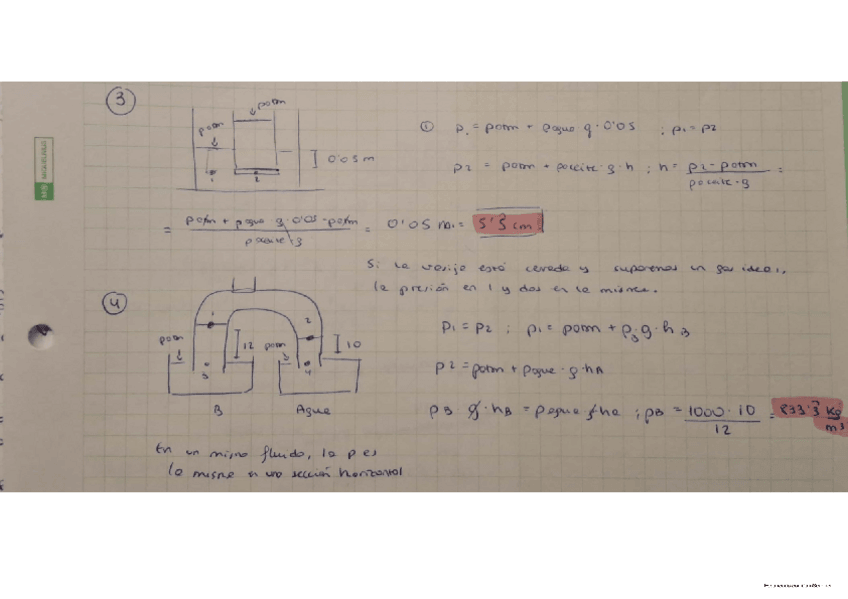 3
patm
patm
0'05 m
1
2
① p1 = patm + ρagua g · 0'05 ; p1 = p2
p2 = patm + ρaceite g · h ; h = p2 - patm / ρaceite · g =
= patm + ρagua g · 0'05 - patm / ρaceite · g = 0'05 m = 5'3 cm
Si la vasija está cerrada y suponemos un gas ideal,
la presión en 1 y dos en la misma.
4
1
2
patm
12
patm
10
3
4
B
Agua
p1 = p2 ; p1 = patm + ρB g · hB
p2 = patm + ρagua · g · hA
ρB g · hB = ρagua g · ha ; ρB = 1000 · 10 / 12 = 833'3 Kg/m³
En un mismo fluido, la p es
la misma en una sección horizontal